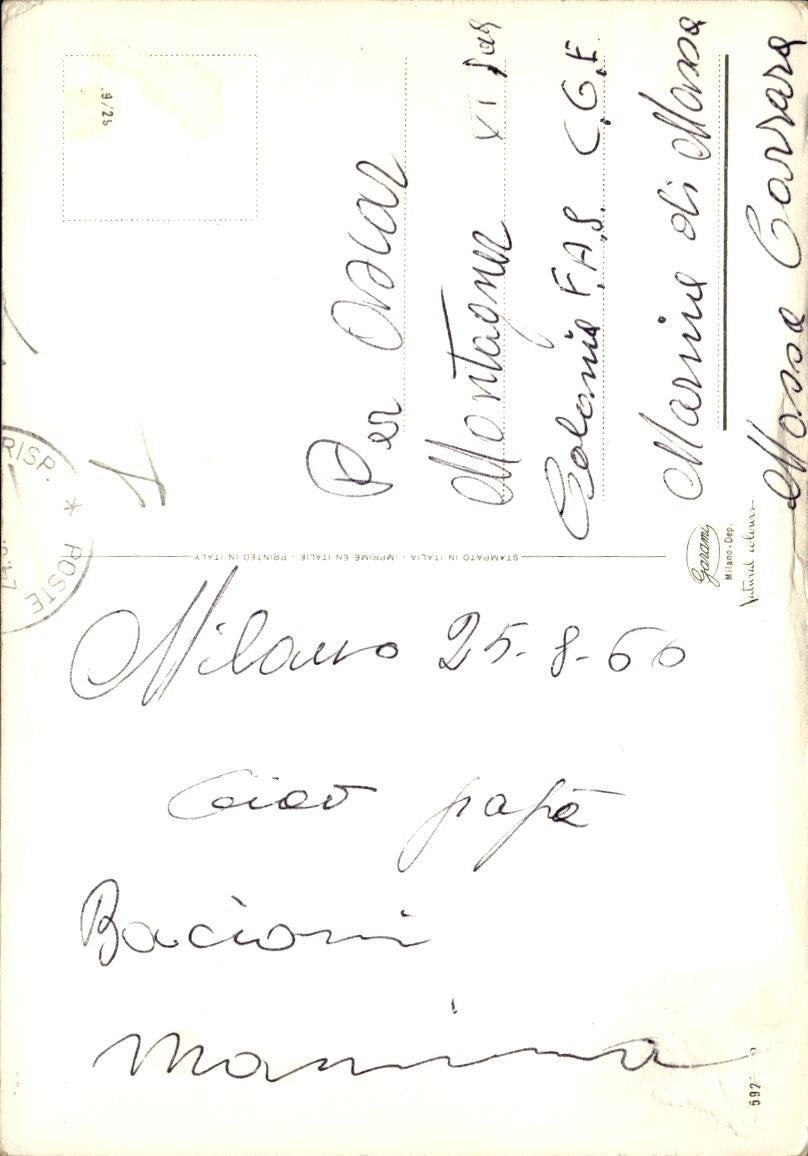 Milano 25-8-60
Ciao papà
Bacioni
Mammina
Per Oscar
Montagna VI
Colonia F.A.S. C.G.E.
Marina di Massa
Massa Carrara
STAMPATO IN ITALIA - IMPRIME EN ITALIE - PRINTED IN ITALY
Garami
Milano - Dep.
Natural colours
RISP. * POSTE
9/25
592